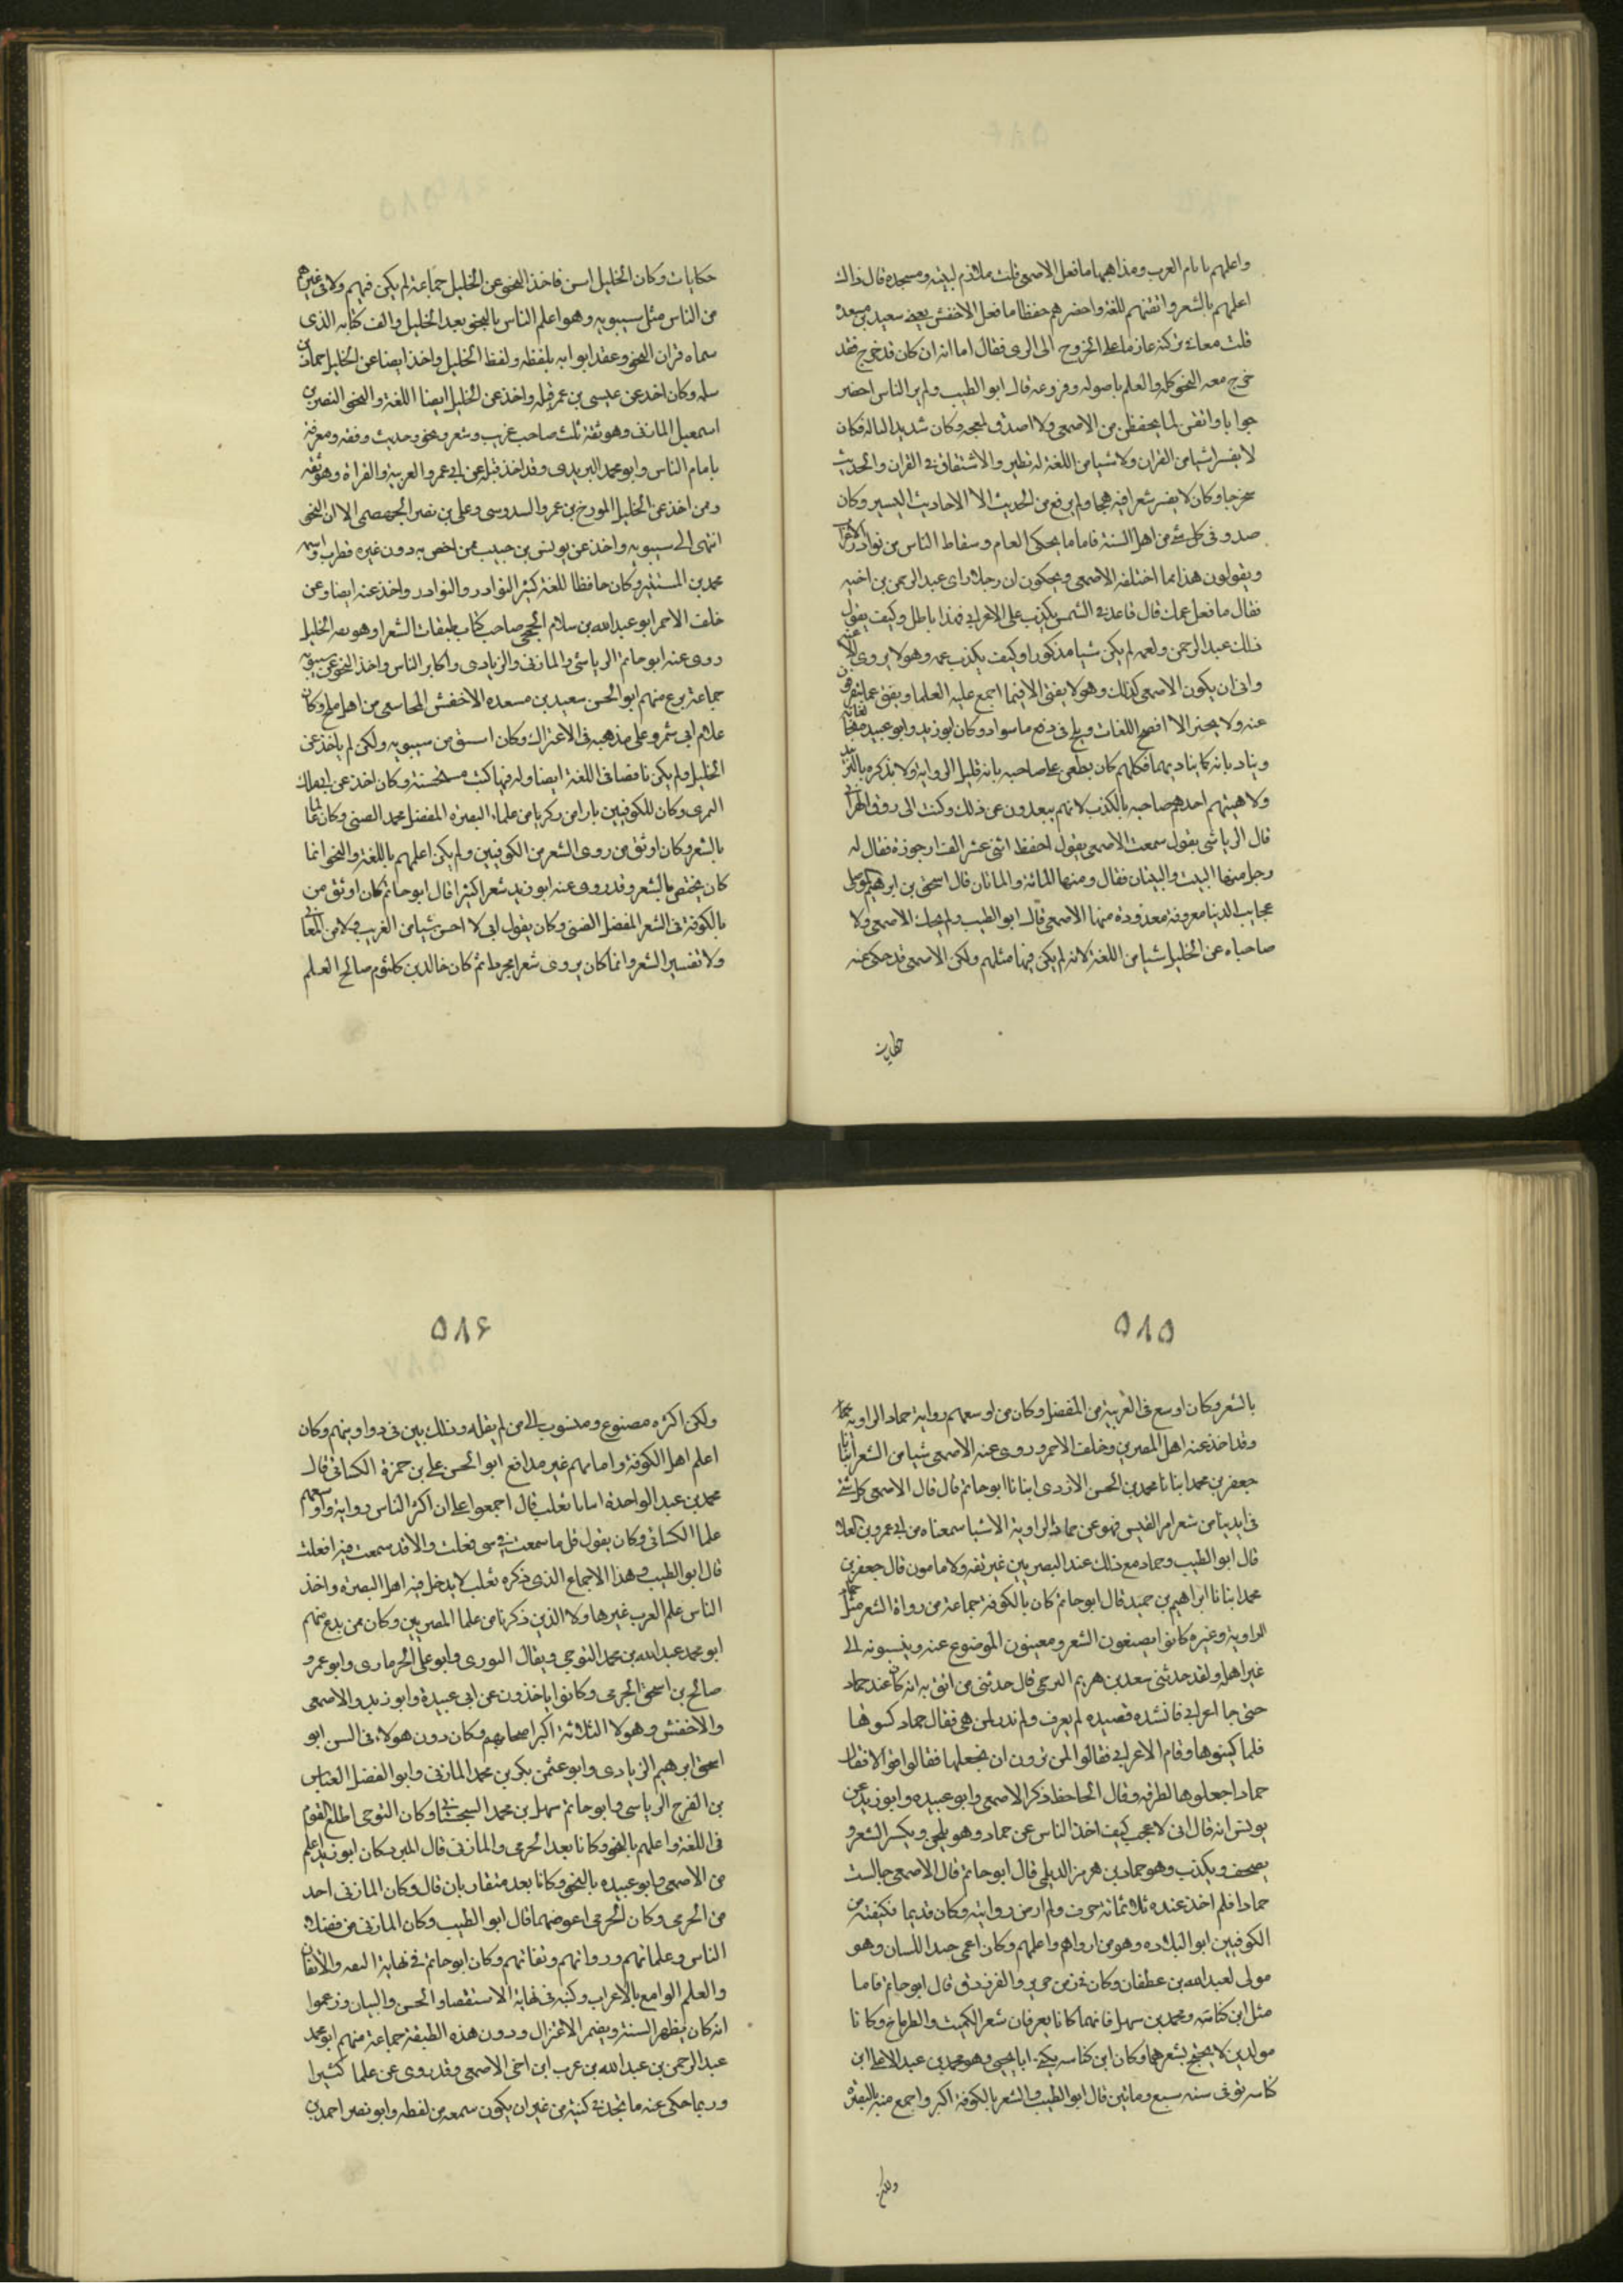 واعلمهم بايام العرب ومذاهبها ما فعل الاصمعى قلت ملازم لبيته ومسجده قال ذاك
اعلمهم بالشعر واتقنهم للغة واحضرهم حفظا ما فعل الاخفش يعنى سعيد بن مسعده
قلت معافى تركته عازما على الخروج الى الرى فقال اما انه ان كان قد خرج فقد
خرج معه النحو كله والعلم باصوله وفروعه قال ابو الطيب ولم ير الناس احضر
جوابا واتقن لما يحفظ من الاصمعى ولا اصدق لهجه وكان شديد التاله فكان
لا يفسر شيا من القران ولا شيا من اللغة له نظير والاشتقاق فى القران والحديث
تحرجا وكان لا يفسر شعرا فيه هجا ولم يرفع من الحديث الا الاحاديث اليسير وكان
صدوقا فى كل شئ من اهل السنة فاما ما يحكى العام وسقاط الناس من نوادر الاعراب
ويقولون هذا مما اختلقه الاصمعى ويحكون ان رجلا راى عبد الرحمن بن اخيه
فقال ما فعل عمك قال قاعد فى الشمس يكذب على الاعراب فهذا باطل وكيف يقول
ذلك عبد الرحمن ولعمه لم يكن شيا مذكورا وكيف يكذب عمه وهو لا يروى الا عنه
وانى ان يكون الاصمعى كذلك وهو لا يفتى الا فيما اجمع عليه العلما ويقف عما ينفردون
عنه ولا يجيز الا افصح اللغات ويلج فى دفع ما سواه وكان ابو زيد وابو عبيده يخالفانه
ويناديانه كما يناديهما فكلهم كان يطعن على صاحبه بانه قليل الرواية ولا يذكره بالتزيد
ولا يتهم احدهم صاحبه بالكذب لانهم يبعدون عن ذلك وكتب الى
قال الرياشى يقول سمعت الاصمعى يقول احفظ اثنى عشر الف ارجوزة فقال له
رجل منها البيت والبيتان فقال ومنها المائة والمائتان قال اسحق بن ابرهيم الموصلى
عجايب الدنيا معروفة معدودة منها الاصمعى قال ابو الطيب ولم يحك الاصمعى ولا
صاحباه عن الخليل شيا من اللغة لانه لم يكن فيها مثلهم ولكن الاصمعى قد حكى عنه
حكايات
حكايات وكان الخليل اسن فاخذ النحو عن الخليل جماعة لم يكن فيهم ولا فى غيرهم
من الناس مثل سيبويه وهو اعلم الناس بالنحو بعد الخليل والف كتابه الذى
سماه قران النحو وعقد ابوابه بلفظه ولفظ الخليل واخذ ايضا عن الخليل حماد بن
سلمه وكان اخذ عن عيسى بن عمر قبله واخذ عن الخليل ايضا اللغة والنحو النضر بن
اسمعيل المازنى وهو ثقة ثبت صاحب غريب وشعر ونحو وحديث وفقه ومعرفة
بايام الناس وابو محمد اليزيدى وقد اخذ قبله عن ابى عمرو العربية والقراة وهو ثقه
وممن اخذ عن الخليل المورخ بن عمرو السدوسى وعلى بن نصر الجهضمى الا ان النحو
انتهى الى سيبويه واخذ عن يونس بن حبيب ممن اختص به دون غيره قطرب واسمه
محمد بن المستنير وكان حافظا للغة كثير النوادر والنوادر واخذ عنه ايضا وعن
خلف الاحمر ابو عبد الله بن سلام الجمحى صاحب كتاب طبقات الشعرا وهو بصر الخليل
روى عنه ابو حاتم الرياشى والمازنى والزيادى واكابر الناس واخذ النحو عن سيبويه
جماعة برع منهم ابو الحسن سعيد بن مسعده الاخفش المجاسعى من اهل بلخ وكان
غلام ابى شمر وعلى مذهبه فى الاعتزال وكان اسن من سيبويه ولكن لم ياخذ عن
الخليل ولم يكن ناقصا فى اللغة ايضا وله فيها كتب مستحسنة وكان اخذ عن ابى مالك
النمرى وكان للكوفيين بازا من ذكرنا من علماء البصرة المفضل محمد الضبى وكان عالما
بالشعر وكان اوثق من روى الشعر من الكوفيين ولم يكن اعلمهم باللغة والنحو انما
كان يختص بالشعر وقد روى عنه ابو زيد شعرا كثيرا قال ابو حاتم كان اوثق من
بالكوفة فى الشعر المفضل الضبى وكان يقول انى لا احسن شيا من الغريب ولا من المعانى
ولا تفسير الشعر وانما كان يروى شعرا مجردا ثم كان خالد بن كلثوم صالح العلم
٥٨٥
بالشعر وكان اوسع فى العربية من المفضل وكان من اوسعهم رواية حماد الراوية
وقد اخذ عنه اهل المصرين وخلف الاحمر وروى عنه الاصمعى شيا من الشعر انبانا
جعفر بن محمد انبانا محمد بن الحسن الازدى انبانا ابو حاتم قال قال الاصمعى كل شئ
فى ايدينا من شعر امر القيس فهو عن حماد الراوية الا شيا سمعناه من ابى عمرو بن العلا
قال ابو الطيب وحماد مع ذلك عند البصريين غير ثقه ولا مامون قال جعفر بن
محمد انبانا ابراهيم بن حميد قال ابو حاتم كان بالكوفة جماعة من رواة الشعر مثل حماد
الراوية وغيره كانوا يصنعون الشعر ومعينون الموضوع عنه وينسبونه الى
غير اهله ولقد حدثنى سعد بن هريم البرجى قال حدثنى من اثق به انه كان عند حماد
حتى جا اعرابى فانشده قصيده لم يعرف ولم ندر لمن هى فقال حماد كسوها
فلما كتبوها وقام الاعرابى فقالوا لمن ترون ان نجعلها فقالوا اقوالا فقال
حماد اجعلوها لطرفه وقال الجاحظ ذكر الاصمعى وابو عبيده وابو زيد عن
يونس انه قال انى لا عجب كيف اخذ الناس عن حماد وهو يلحن ويكسر الشعر و
يصحف ويكذب وهو حماد بن هرمز الديلى قال ابو حاتم قال الاصمعى جالست
حمادا فلم اخذ عنده ثلاثمائة حرف ولم ارض روايته وكان قديما فكيفته من
الكوفيين ابو البلاده وهو من ارواهم واعلمهم وكان اعمى جيد اللسان وهو
مولى لعبد الله بن غطفان وكان فى زمن جرير والفرزدق قال ابو حاتم فاما
مثل ابن كناسة ومحمد بن سهل فانهما كانا يعرفان شعر الكميت والطرماح وكانا
مولدين لا يحتج بشعرهما وكان ابن كناسه يكنى ابا يحيى وهو محمد بن عبد الاعلى ابن
كناسه توفى سنه سبع ومائتين قال ابو الطيب والشعر بالكوفة اكبر واجمع منه بالبصره
ولكن
٥٨۶
ولكن اكثره مصنوع ومنسوب الى من لم يقله وذلك بين فى دواوينهم وكان
اعلم اهل الكوفة وامامهم غير مدافع ابو الحسن على بن حمزة الكسائى قال
محمد بن عبد الواحدة انبانا ثعلب قال اجمعوا على ان اكثر الناس رواية واوسعهم
علما الكسائى وكان يقول قل ما سمعت فى شى فعلت والا قد سمعت فيه افعلت
قال ابو الطيب وهذا الاجماع الذى ذكره ثعلب لا يدخل فيه اهل البصرة واخذ
الناس علم العرب غير هاولا الذين ذكرنا من علما المصريين وكان ممن بدع منهم
ابو محمد عبد الله بن محمد التوجى ويقال التورى وابو على الحرمارى وابو عمرو
صالح بن اسحق الجرمى وكانوا ياخذون عن ابى عبيدة وابو زيد والاصمعى
والاخفش وهولا الثلاثة اكبر اصحابهم وكان دون هولاء فى السن ابو
اسحق ابرهيم الزيادى وابو عثمن بكر بن محمد المازنى وابو الفضل العباس
بن الفرج الرياسى وابو حاتم سهل بن محمد السجستانى وكان التوجى اطلع القوم
فى اللغة واعلمهم بالنحو وكانا بعد الحرمى والمازنى قال المبرد كان ابو زيد اعلم
من الاصمعى وابو عبيده بالنحو وكانا بعد متقاربان قال وكان المازنى احد
من الحرمى وكان الحرمى اغوصهما قال ابو الطيب وكان المازنى من فضلاء
الناس وعلمائهم ورواتهم وثقاتهم وكان ابو حاتم فى نهاية الثقه والاتقان
والعلم الواسع بالاعراب وكتبه فى نهاية الاستقصا والحسن والبيان وزعموا
انه كان يظهر السنة ويضمر الاعتزال ودون هذه الطبقة جماعة منهم ابو محمد
عبد الرحمن بن عبد الله بن عرب ابن اخى الاصمعى وقد روى عن علما كثيرا
وربما حكى عنه ما تجد فى كتبه من غير ان يكون سمعه من لفظه وابو نصر احمد بن